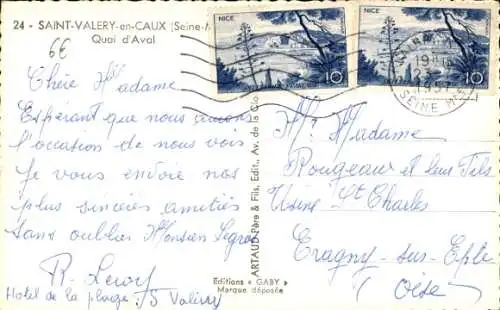 24 - SAINT-VALERY-en-CAUX (Seine-M
Quai d'Aval
6€
Chère Madame
Espérant que nous aurons
l'occasion de nous voir
je vous envoie nos
plus sincères amitiés
sans oublier Monsieur Legros
R. Leroy
Hotel de la plage. St Valéry
ARTAUD Père & Fils, Edit., Av. de la Glo
Editions « GABY »
Marque déposée
NICE
10
NICE
10
SEINE
Mr Madame
Rougeaux et leur fils
Usine St Charles
Eragny-sur-Epte
(Oise)